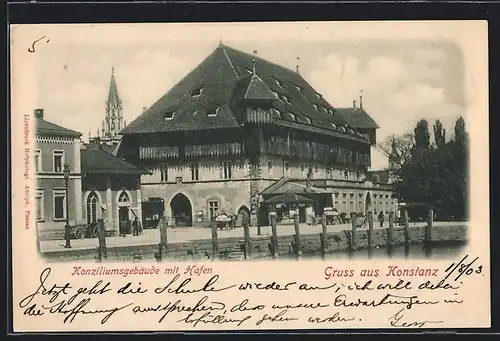 5.
Lichtdruck Helphologr. Adolph, Passau
Konziliumsgebäude mit Hafen
Gruss aus Konstanz
1/8 03
Jetzt geht die Schule wieder an; ich will dabei
die Hoffnung aussprechen, dass unsere Erwartungen in
Erfüllung gehen werden. Georg